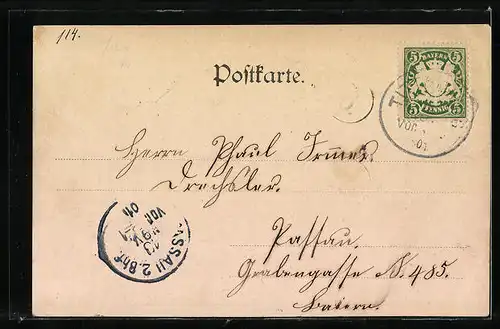 114.
Postkarte.
5 BAYERN 5
5 PFENNIG 5
VOR.
Herrn Phaul Irmer
Drechsler.
Passau.
Grabengasse N. 485.
Baiern.
PASSAU 2. Bhf
13
VOR.
01